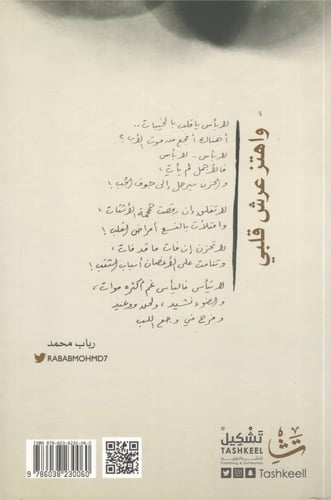 واهتز عرش قلبي
لا بأس يا قلب بالخيبات..
أهناك أفجع من موت الأب؟
لا بأس.. لا بأس
فالأجمل لم يأتِ،
والحزن سيرحل إلى جوف الجب!
لا تقلق إن رقصت جمجمة الأشتات،
وامتلأت بالنسغ أمراض القلب!
لا تحزن إن فات ما قد فات،
وتنامت على الأغصان أسباب الشغب!
لا تيأس فاليأس غم أكثره موات،
والضوء نشيد، ولحن ووعيد
ومزج في وجع اللب
رباب محمد
RABABMOHMD7
ISBN 978-603-8230-06-0
9 786038 230060
تشكيل
TASHKEEL
للنشر والتوزيع
Publishing & Distribution
Tashkeell